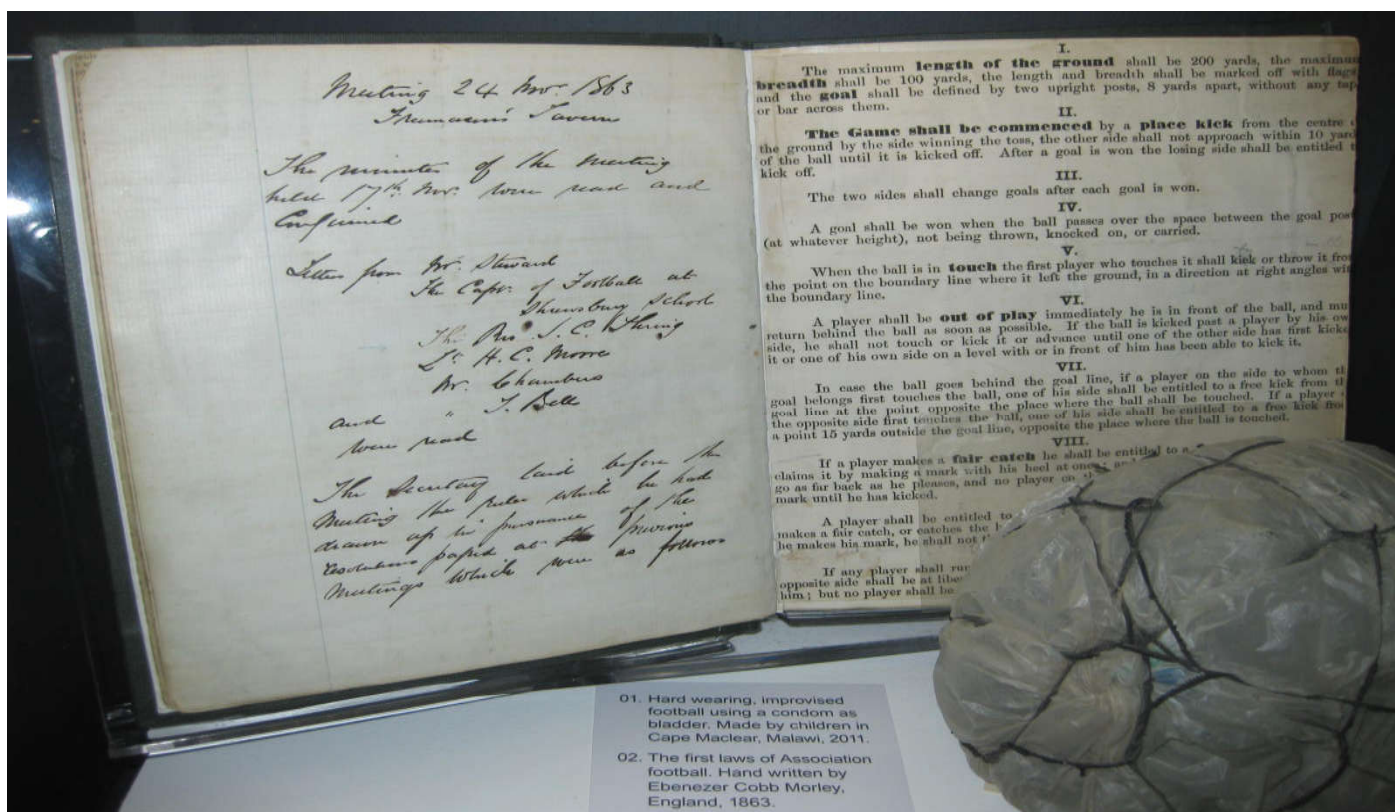 Meeting 24 Novr. 1863
Freemason's Tavern
The minutes of the Meeting
held 17th. Nov. were read and
Confirmed
Letters from Mr. Steward
The Captn. of Football at
Shrewsbury School
The Rev. J. C. Thring
Lt. H. C. Moore
Mr. Chambers
and " J. Bell
were read
The Secretary laid before the
Meeting the rules which he had
drawn up in pursuance of the
resolutions passed at the previous
Meetings which were as follows
I.
The maximum length of the ground shall be 200 yards, the maximum
breadth shall be 100 yards, the length and breadth shall be marked off with flags
and the goal shall be defined by two upright posts, 8 yards apart, without any tap
or bar across them.
II.
The Game shall be commenced by a place kick from the centre o
the ground by the side winning the toss, the other side shall not approach within 10 yard
of the ball until it is kicked off. After a goal is won the losing side shall be entitled t
kick off.
III.
The two sides shall change goals after each goal is won.
IV.
A goal shall be won when the ball passes over the space between the goal post
(at whatever height), not being thrown, knocked on, or carried.
V.
When the ball is in touch the first player who touches it shall kick or throw it from
the point on the boundary line where it left the ground, in a direction at right angles wit
the boundary line.
VI.
A player shall be out of play immediately he is in front of the ball, and mu
return behind the ball as soon as possible. If the ball is kicked past a player by his ow
side, he shall not touch or kick it or advance until one of the other side has first kicke
it or one of his own side on a level with or in front of him has been able to kick it.
VII.
In case the ball goes behind the goal line, if a player on the side to whom th
goal belongs first touches the ball, one of his side shall be entitled to a free kick from th
goal line at the point opposite the place where the ball shall be touched. If a player o
the opposite side first touches the ball, one of his side shall be entitled to a free kick from
a point 15 yards outside the goal line, opposite the place where the ball is touched.
VIII.
If a player makes a fair catch he shall be entitled to a
claims it by making a mark with his heel at once; and
go as far back as he pleases, and no player on th
mark until he has kicked.
A player shall be entitled to
makes a fair catch, or catches the b
he makes his mark, he shall not
If any player shall run
opposite side shall be at libe
him; but no player shall be
01. Hard wearing, improvised
football using a condom as
bladder. Made by children in
Cape Maclear, Malawi, 2011.
02. The first laws of Association
football. Hand written by
Ebenezer Cobb Morley,
England, 1863.